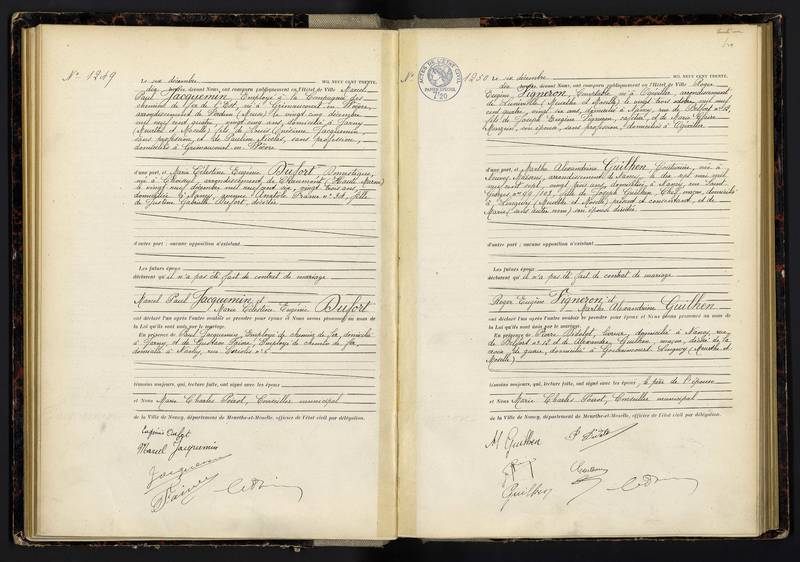 N° 1249
Le six décembre MIL NEUF CENT TRENTE,
dix heures, devant Nous, ont comparu publiquement en l'Hôtel de Ville Marcel
Paul Jacquemin, Employé à la Compagnie des
chemins de fer de l'Est, né à Grimaucourt en Woëvre,
arrondissement de Verdun (Meuse) le vingt cinq décembre
mil neuf cent quatre, vingt cinq ans, domicilié à Jarny
(Meurthe et Moselle) fils de Louis Jacquemin,
sans profession, et de Pauline Nicolas, sans profession,
domiciliés à Grimaucourt en Woëvre
d'une part, et Marie Célestine Eugénie Dufort Domestique,
née à arrondissement de Chaumont (Haute Marne)
le vingt neuf décembre mil neuf cent six, vingt trois ans
domiciliée à Nancy, avenue Anatole France n° 34, fille
de Justine Gabrielle Dufort, décédée
d'autre part ; aucune opposition n'existant.
Les futurs époux
déclarent qu'il n'a pas été fait de contrat de mariage
Marcel Paul Jacquemin et
Marie Célestine Eugénie Dufort
ont déclaré l'un après l'autre vouloir se prendre pour époux et Nous avons prononcé au nom de
la Loi qu'ils sont unis par le mariage.
En présence de Paul Jacquemin, Employé de chemin de fer, domicilié
à Jarny, et de Gustave Employé de chemin de fer,
domicilié à Nancy, rue n° 6
témoins majeurs, qui, lecture faite, ont signé avec les époux
et Nous Marie Charles Poirot, Conseiller municipal
de la Ville de Nancy, département de Meurthe-et-Moselle, officier de l'état civil par délégation.
Eugénie Dufort
Marcel Jacquemin
Jacquemin
N° 1250
ACTES DE L'ÉTAT CIVIL
PAPIER SPÉCIAL
1f20
Le six décembre MIL NEUF CENT TRENTE,
dix heures, devant Nous, ont comparu publiquement en l'Hôtel de Ville Roger
Eugène Vigneron, né à Ogéviller, arrondissement
de Lunéville (Meurthe et Moselle) le vingt trois mil neuf
cent quatre, vingt six ans, domicilié à Nancy, rue de Belfort n° 12,
fils de Joseph Eugène Vigneron, et de Marie
son épouse, sans profession, domiciliés à Ogéviller
d'une part, et Marthe Alexandrine Guilhen, Couturière, née à
arrondissement de Nancy, le dix mil
neuf cent sept, vingt trois ans, domiciliée à Nancy, rue Saint
Georges, n° fille de Joseph Guilhen, Chef maçon, domicilié
à Longwy (Meurthe et Moselle) présent et consentant, et de
Marie (sans autre nom) son épouse décédée
d'autre part ; aucune opposition n'existant.
Les futurs époux
déclarent qu'il n'a pas été fait de contrat de mariage
Roger Eugène Vigneron et
Marthe Alexandrine Guilhen
ont déclaré l'un après l'autre vouloir se prendre pour époux et Nous avons prononcé au nom de
la Loi qu'ils sont unis par le mariage.
En présence de Pierre domicilié à Nancy, rue
de Belfort n° 12 et de Alexandre Guilhen, maçon, décoré de la
croix de guerre, domicilié à Longwy (Meurthe et
Moselle)
témoins majeurs, qui, lecture faite, ont signé avec les époux, le père de l'épouse
et Nous Marie Charles Poirot, Conseiller municipal
de la Ville de Nancy, département de Meurthe-et-Moselle, officier de l'état civil par délégation.
M Guilhen
Guilhen